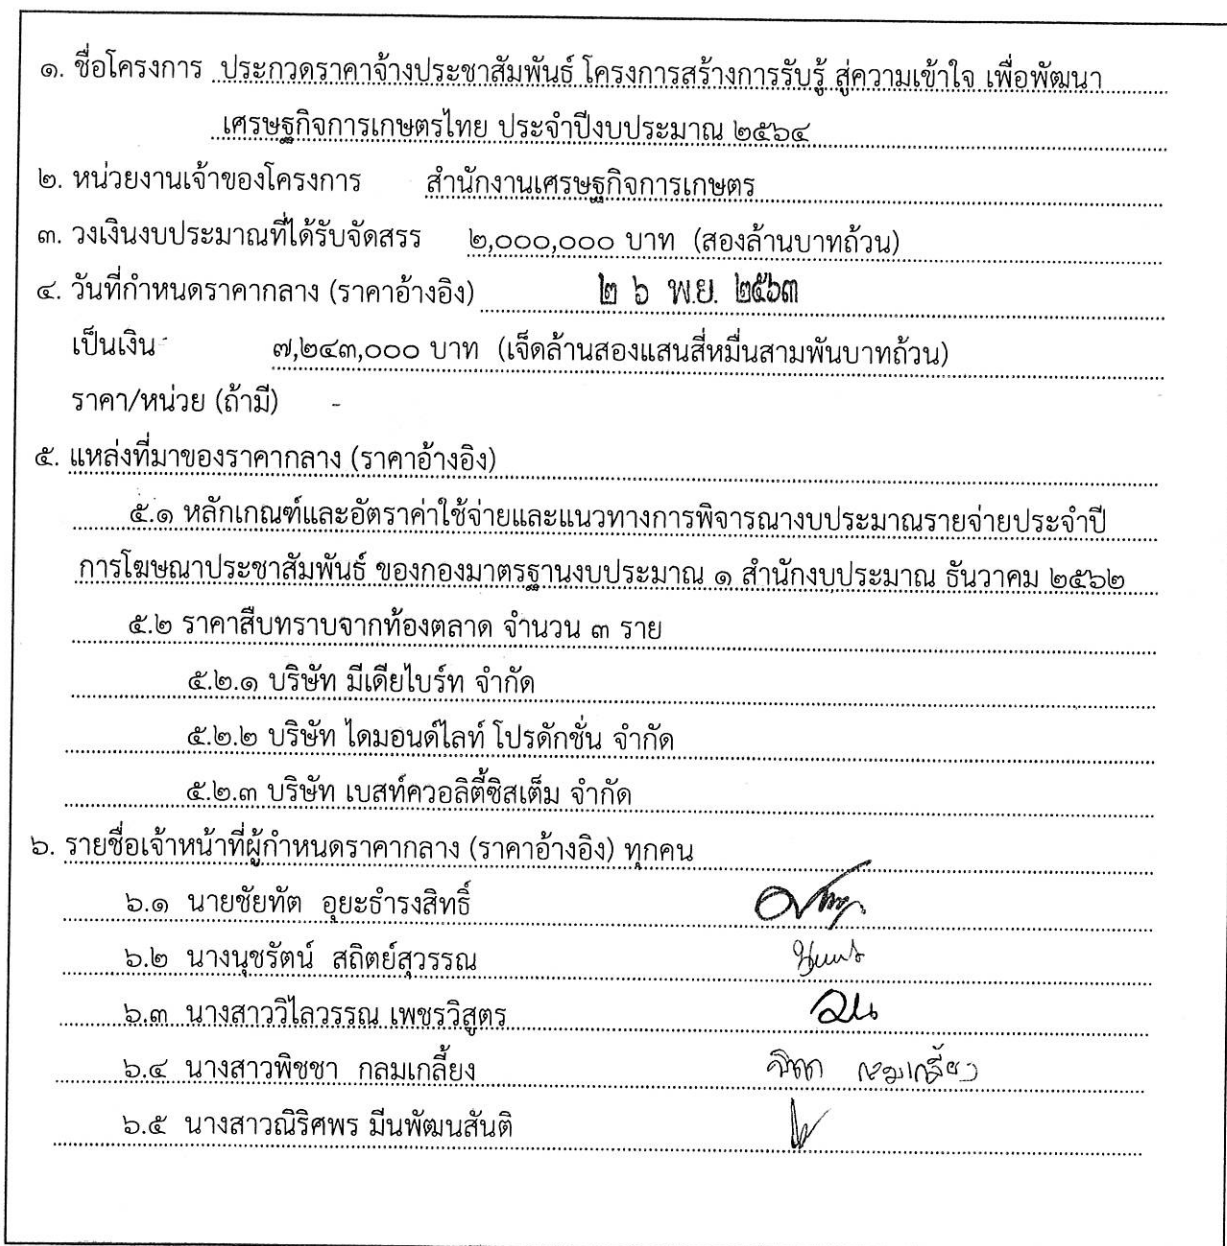 ๑. ชื่อโครงการ ประกวดราคาจ้างประชาสัมพันธ์ โครงการสร้างการรับรู้ สู่ความเข้าใจ เพื่อพัฒนา
เศรษฐกิจการเกษตรไทย ประจำปีงบประมาณ ๒๕๖๔
๒. หน่วยงานเจ้าของโครงการ สำนักงานเศรษฐกิจการเกษตร
๓. วงเงินงบประมาณที่ได้รับจัดสรร ๒,๐๐๐,๐๐๐ บาท (สองล้านบาทถ้วน)
๔. วันที่กำหนดราคากลาง (ราคาอ้างอิง) ๒ ๖ พ.ย. ๒๕๖๓
เป็นเงิน ๗,๒๔๓,๐๐๐ บาท (เจ็ดล้านสองแสนสี่หมื่นสามพันบาทถ้วน)
ราคา/หน่วย (ถ้ามี) -
๕. แหล่งที่มาของราคากลาง (ราคาอ้างอิง)
๕.๑ หลักเกณฑ์และอัตราค่าใช้จ่ายและแนวทางการพิจารณางบประมาณรายจ่ายประจำปี
การโฆษณาประชาสัมพันธ์ ของกองมาตรฐานงบประมาณ ๑ สำนักงบประมาณ ธันวาคม ๒๕๖๒
๕.๒ ราคาสืบทราบจากท้องตลาด จำนวน ๓ ราย
๕.๒.๑ บริษัท มีเดียไบร์ท จำกัด
๕.๒.๒ บริษัท ไดมอนด์ไลท์ โปรดักชั่น จำกัด
๕.๒.๓ บริษัท เบสท์ควอลิตี้ซิสเต็ม จำกัด
๖. รายชื่อเจ้าหน้าที่ผู้กำหนดราคากลาง (ราคาอ้างอิง) ทุกคน
๖.๑ นายชัยทัต อุยะธำรงสิทธิ์
๖.๒ นางนุชรัตน์ สถิตย์สุวรรณ
๖.๓ นางสาววิไลวรรณ เพชรวิสูตร
๖.๔ นางสาวพิชชา กลมเกลี้ยง พิชชา กลมเกลี้ยง
๖.๕ นางสาวณิริศพร มีนพัฒนสันติ